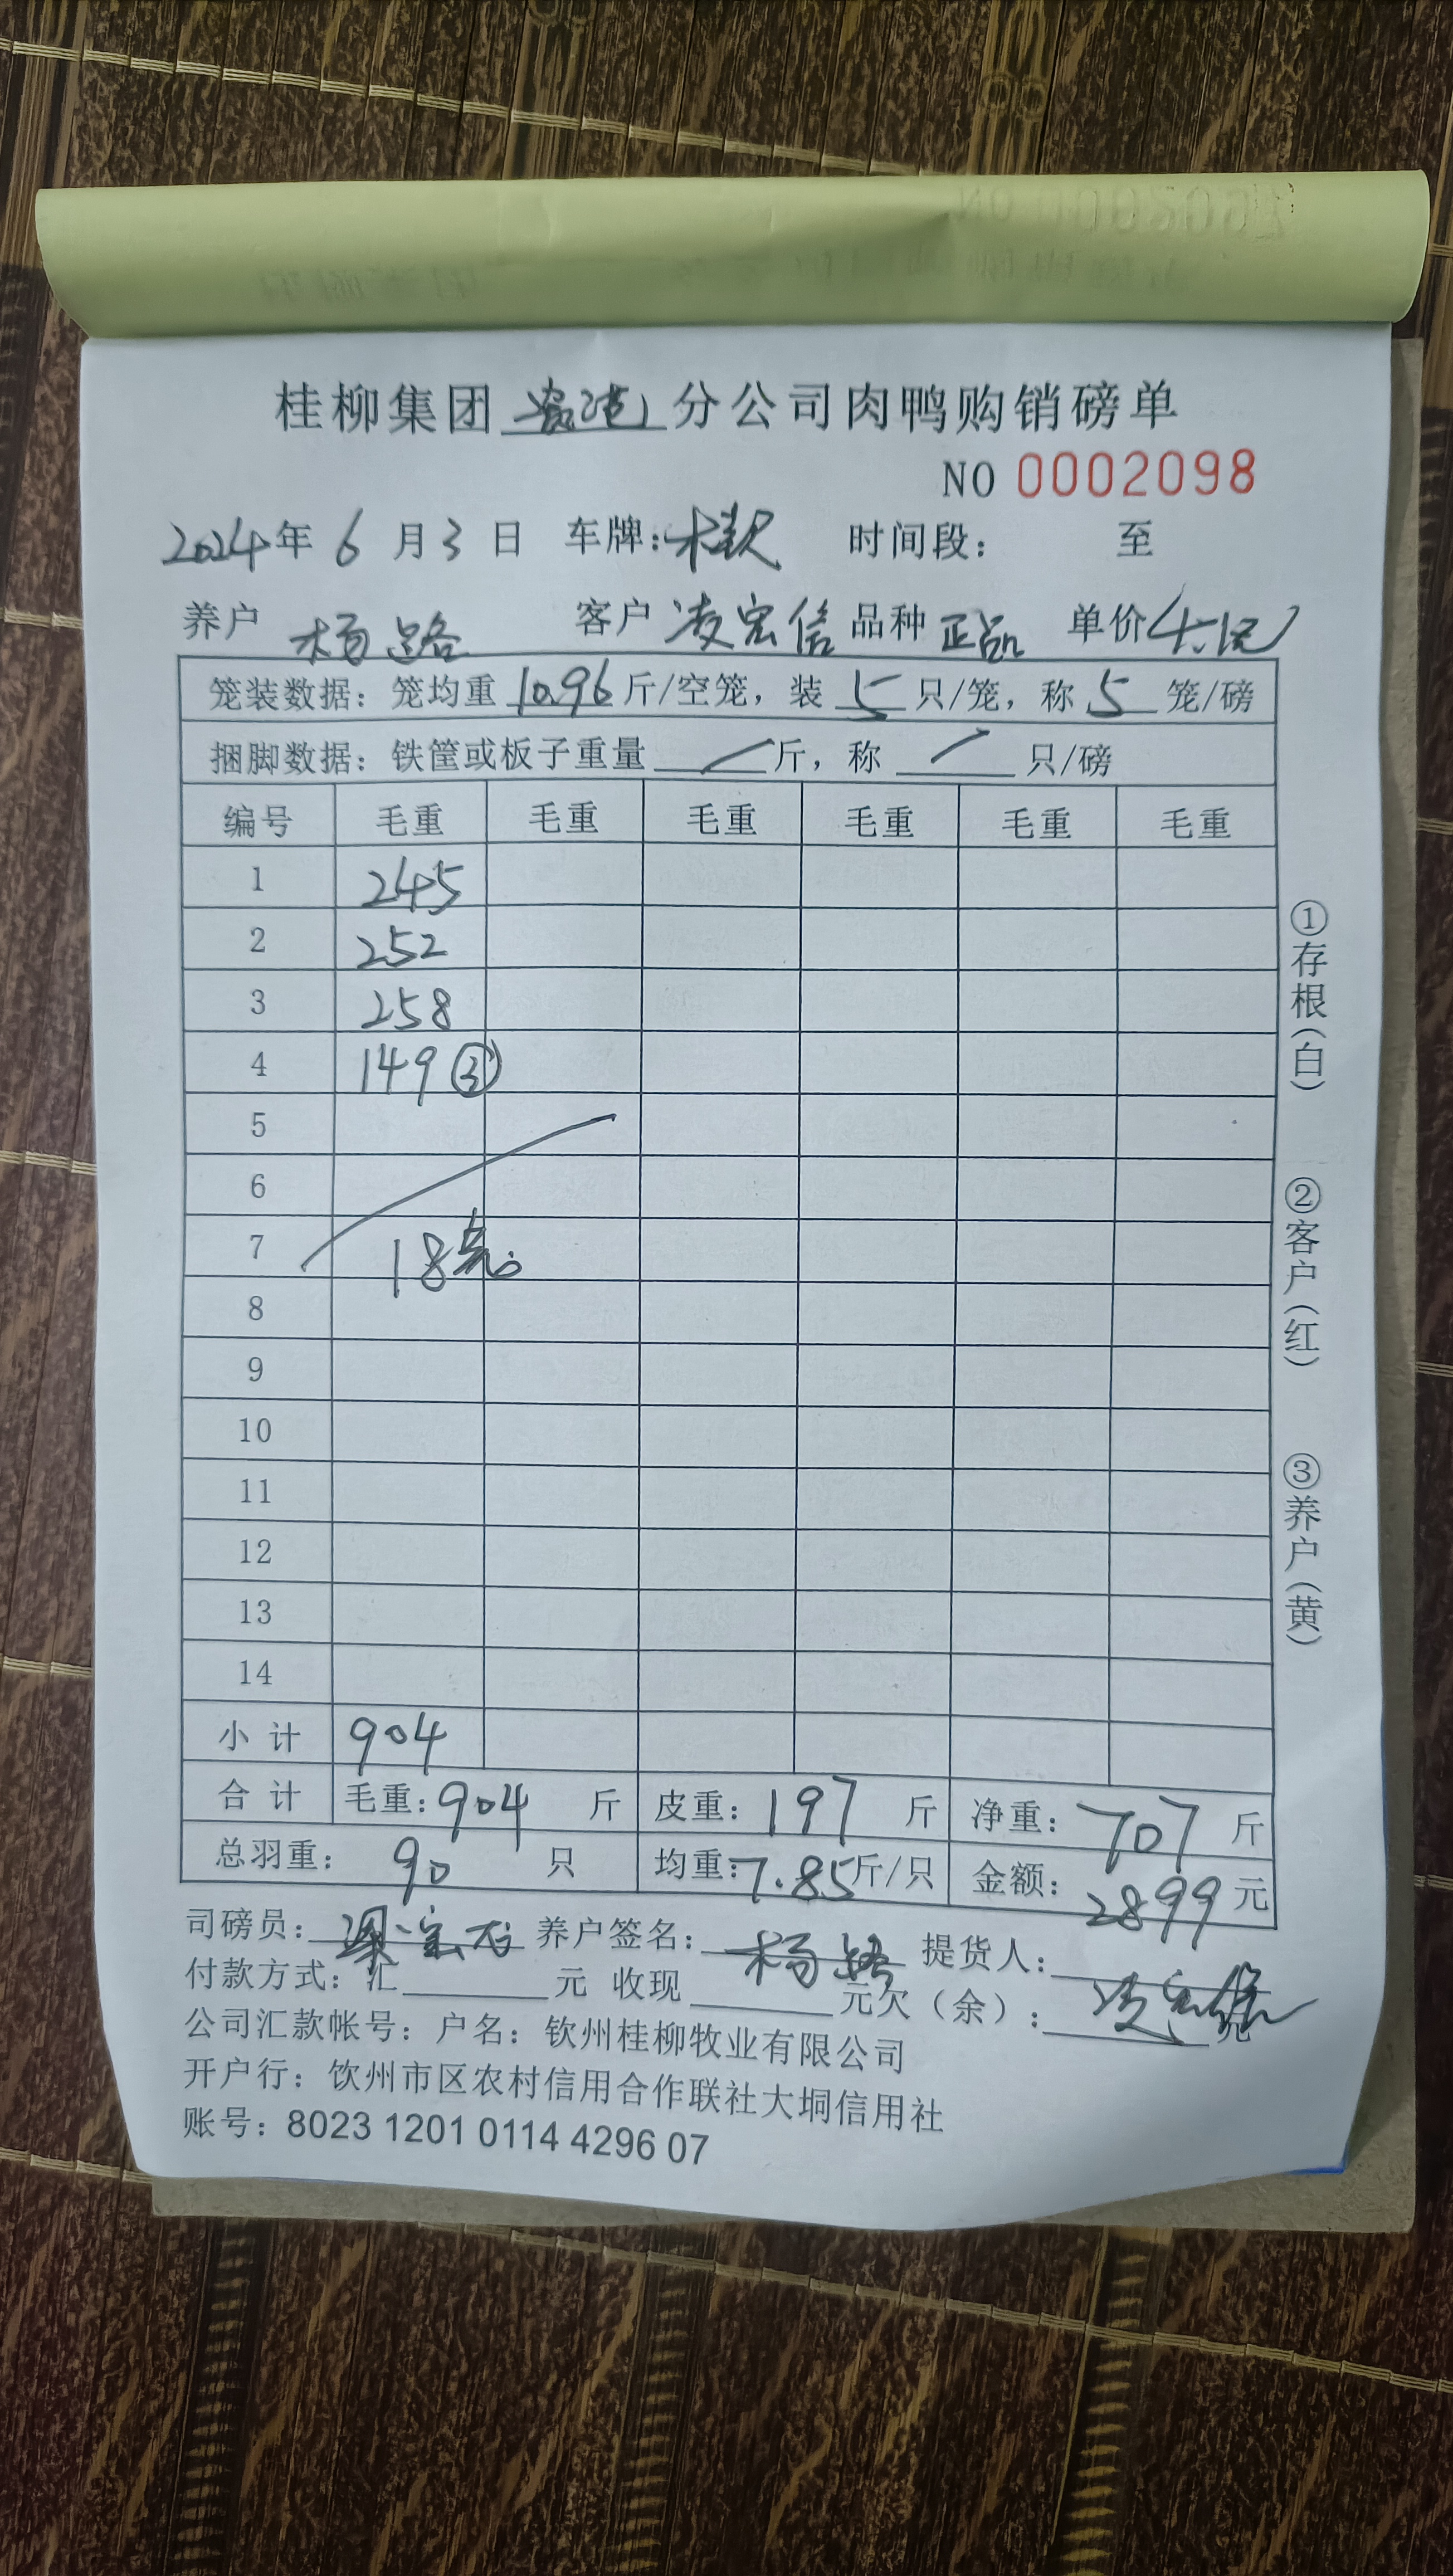 桂柳集团 分公司肉鸭购销磅单
NO 0002098
2024年 6 月 3 日 车牌: 时间段: 至
养户 杨路 客户 凌宏信 品种 正品 单价
笼装数据: 笼均重 10.96 斤/空笼, 装 5 只/笼, 称 5 笼/磅
捆脚数据: 铁筐或板子重量 / 斤, 称 / 只/磅
编号 毛重 毛重 毛重 毛重 毛重 毛重
1 245
2 252
3 258
4 149 ③
5
6
7 18笼
8
9
10
11
12
13
14
小计 904
合计 毛重: 904 斤 皮重: 197 斤 净重: 707 斤
总羽重: 90 只 均重: 7.85 斤/只 金额: 2899 元
司磅员: 养户签名: 杨路 提货人: 凌宏信
付款方式: 汇 元 收现 元 欠(余): 元
公司汇款帐号: 户名: 钦州桂柳牧业有限公司
开户行: 钦州市区农村信用合作联社大垌信用社
账号: 8023 1201 0114 4296 07
①存根(白)
②客户(红)
③养户(黄)